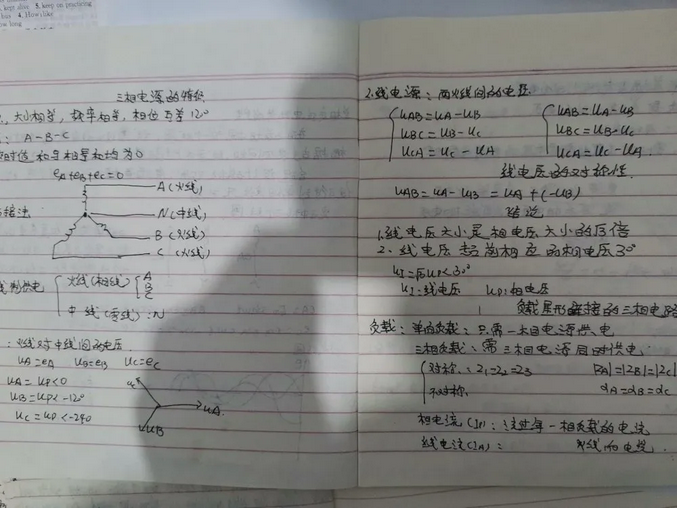 kept alive 5. keep on practicing
4. How I like
long
三相电源的特征
大小相等，频率相等，相位互差12°
: A-B-C
相量和均为0
eA+eB+eC=0
A(火线)
N(中线)
接法
B(火线)
C(火线)
制供电
火线(相线) A B C
中线(零线):N
:火线对中线间的电压
uA=eA uB=eB uC=eC
uA=uP<0
uB=uP<-12°
uC=uP<-240
uA
uB
2.线电源:两火线间的电压
uAB=uA-uB
uBC=uB-uC
uCA=uC-uA
uAB=uA-uB
uBC=uB-uC
uCA=uC-uA
线电压的对称性
uAB=uA-uB=uA+(-uB)
结论
1.线电压大小是相电压大小的√3倍
2.线电压超前相应的相电压3°
uL=√3uP<3°
uL:线电压 uP:相电压
负载星形连接的三相电路
负载:单相负载:只需一相电源供电
三相负载:需三相电源同时供电
对称:Z1=Z2=Z3
不对称
|=|ZB|=|ZC|
αA=αB=αC
相电流(IP):流过每一相负载的电流
线电流 火线 电流